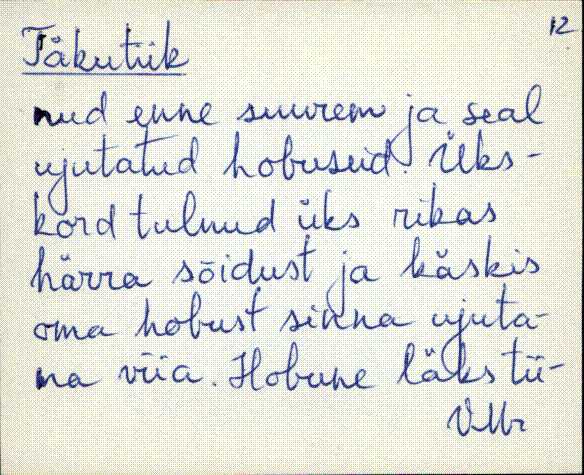 12
Täkutiik
nud enne suurem ja seal
ujutatud hobuseid. Üks-
kord tulnud üks rikas
härra sõidust ja käskis
oma hobust sinna ujuta-
ma viia. Hobune läks tii-